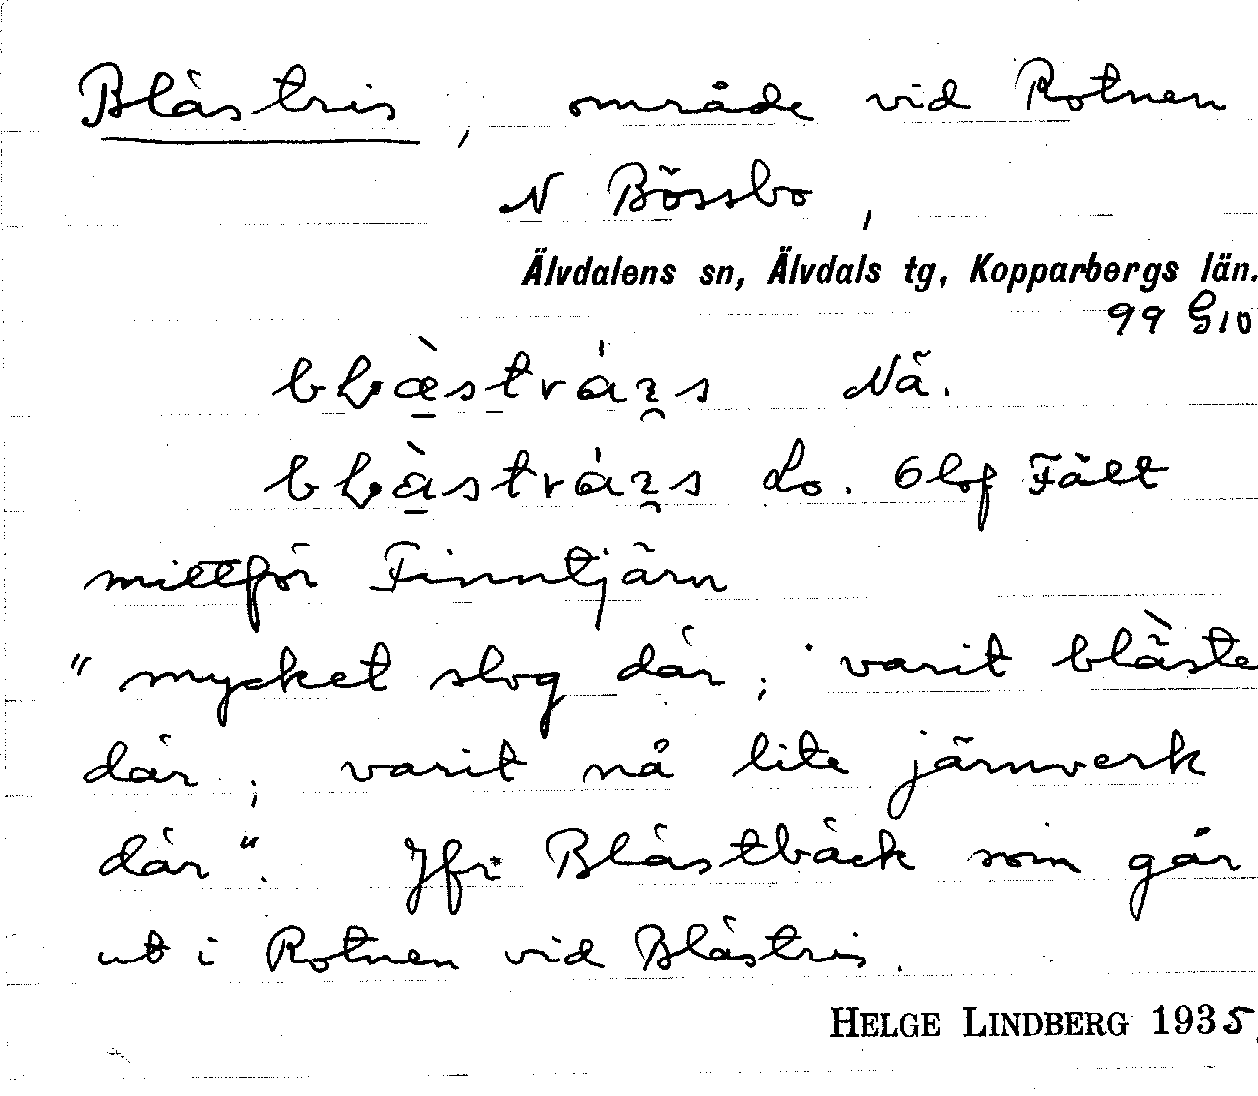 Blästris, område vid Rotnen
N Bössbo,
Älvdalens sn, Älvdals tg, Kopparbergs län.
99 G10
Nä.
Lo. Olof Fält
mittför Finntjärn
"mycket slog där; varit bläste
där; varit nå lite järnverk
där". Jfr Blästbäck som går
ut i Rotnen vid Blästris.
HELGE LINDBERG 1935